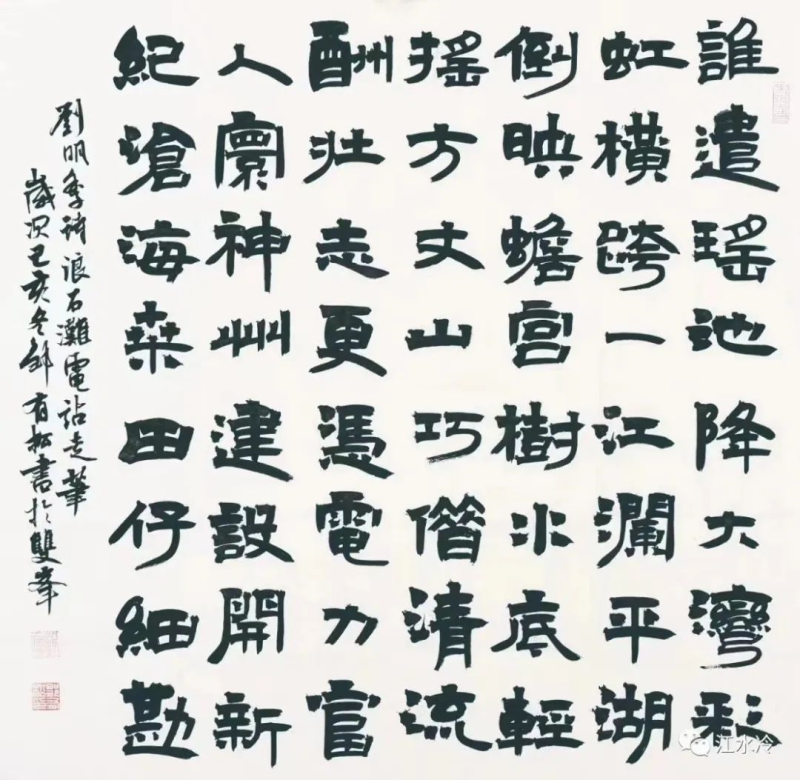 誰遣瑤池降大灣彩
虹橫跨一江瀾平湖
倒映蟾宮樹水底輕
搖方丈山巧借清流
酬壯志更憑電力富
人寰神州建設開新
紀滄海桑田仔細勘
劉明季詩浪石灘電站走筆
歲次己亥冬有松書於雙峯
江水冷